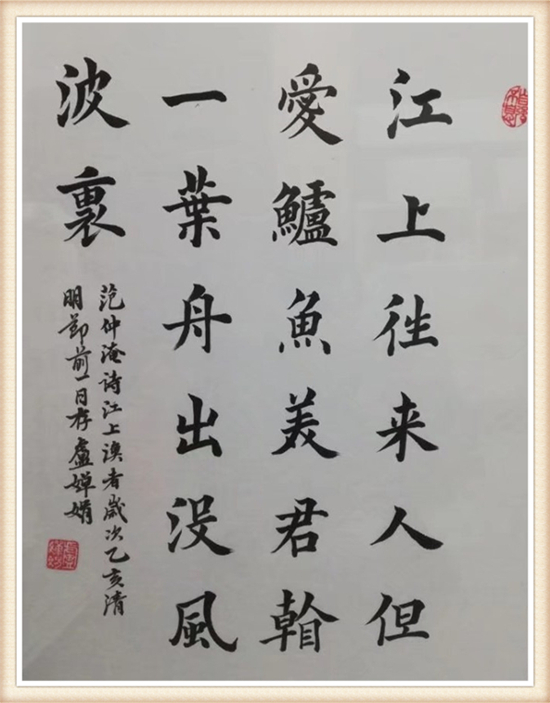 江上往来人但
愛鱸魚美君看
一葉舟出没風
波裏
范仲淹诗江上渔者歲次乙亥清
明節前一日存盧嬋娟